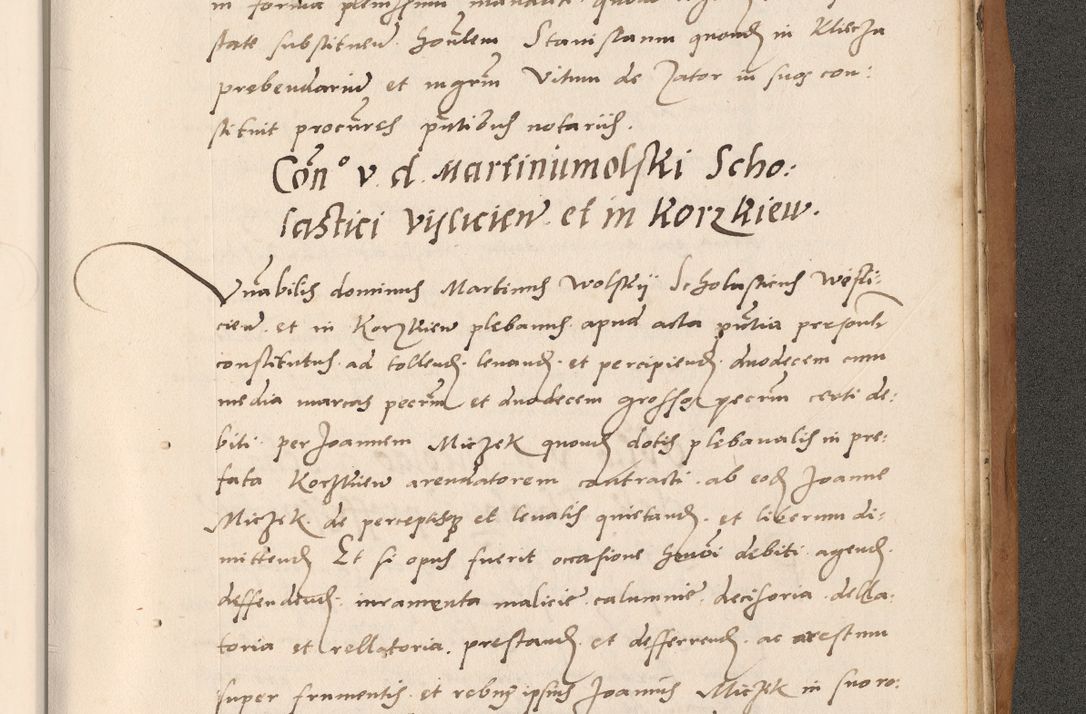 in forma plenissimi mandati quond
state substituen. honlem Stanislaum quond in Kliecza
prebendariu et mgrm Vitum de Zator in suos con:
stituit procures pntibus notariis.
Con° v. d. Martini Wolski Scho:
lastici Vislicien. et in Korzkiew.
Vnabilis dominus Martinus Wolskij Scholasticus Wisli:
cien. et in Korzkiew plebanus. apud acta pntia personlr
constitutus. ad tollend. levand. et percipiend. duodecem cum
media marcas pecrm et duodecem grossos pecrm certi de:
biti. per Joannem Miczek quond dotis plebanalis in pre:
fata Korzkiew arendatorem contracti. ab eod Joanne
Miczek. de perceptisq et levatis quietand. et liberum di:
mittend Et si opus fuerit occasione hmoi debiti. agend.
deffendend. iuramenta malicie. calumnie. decisoria. della:
toria et rellatoria. prestand. et defferrend. ac arestum
super frumentis. et rebus ipsius Joannis Miczek in suo ro: